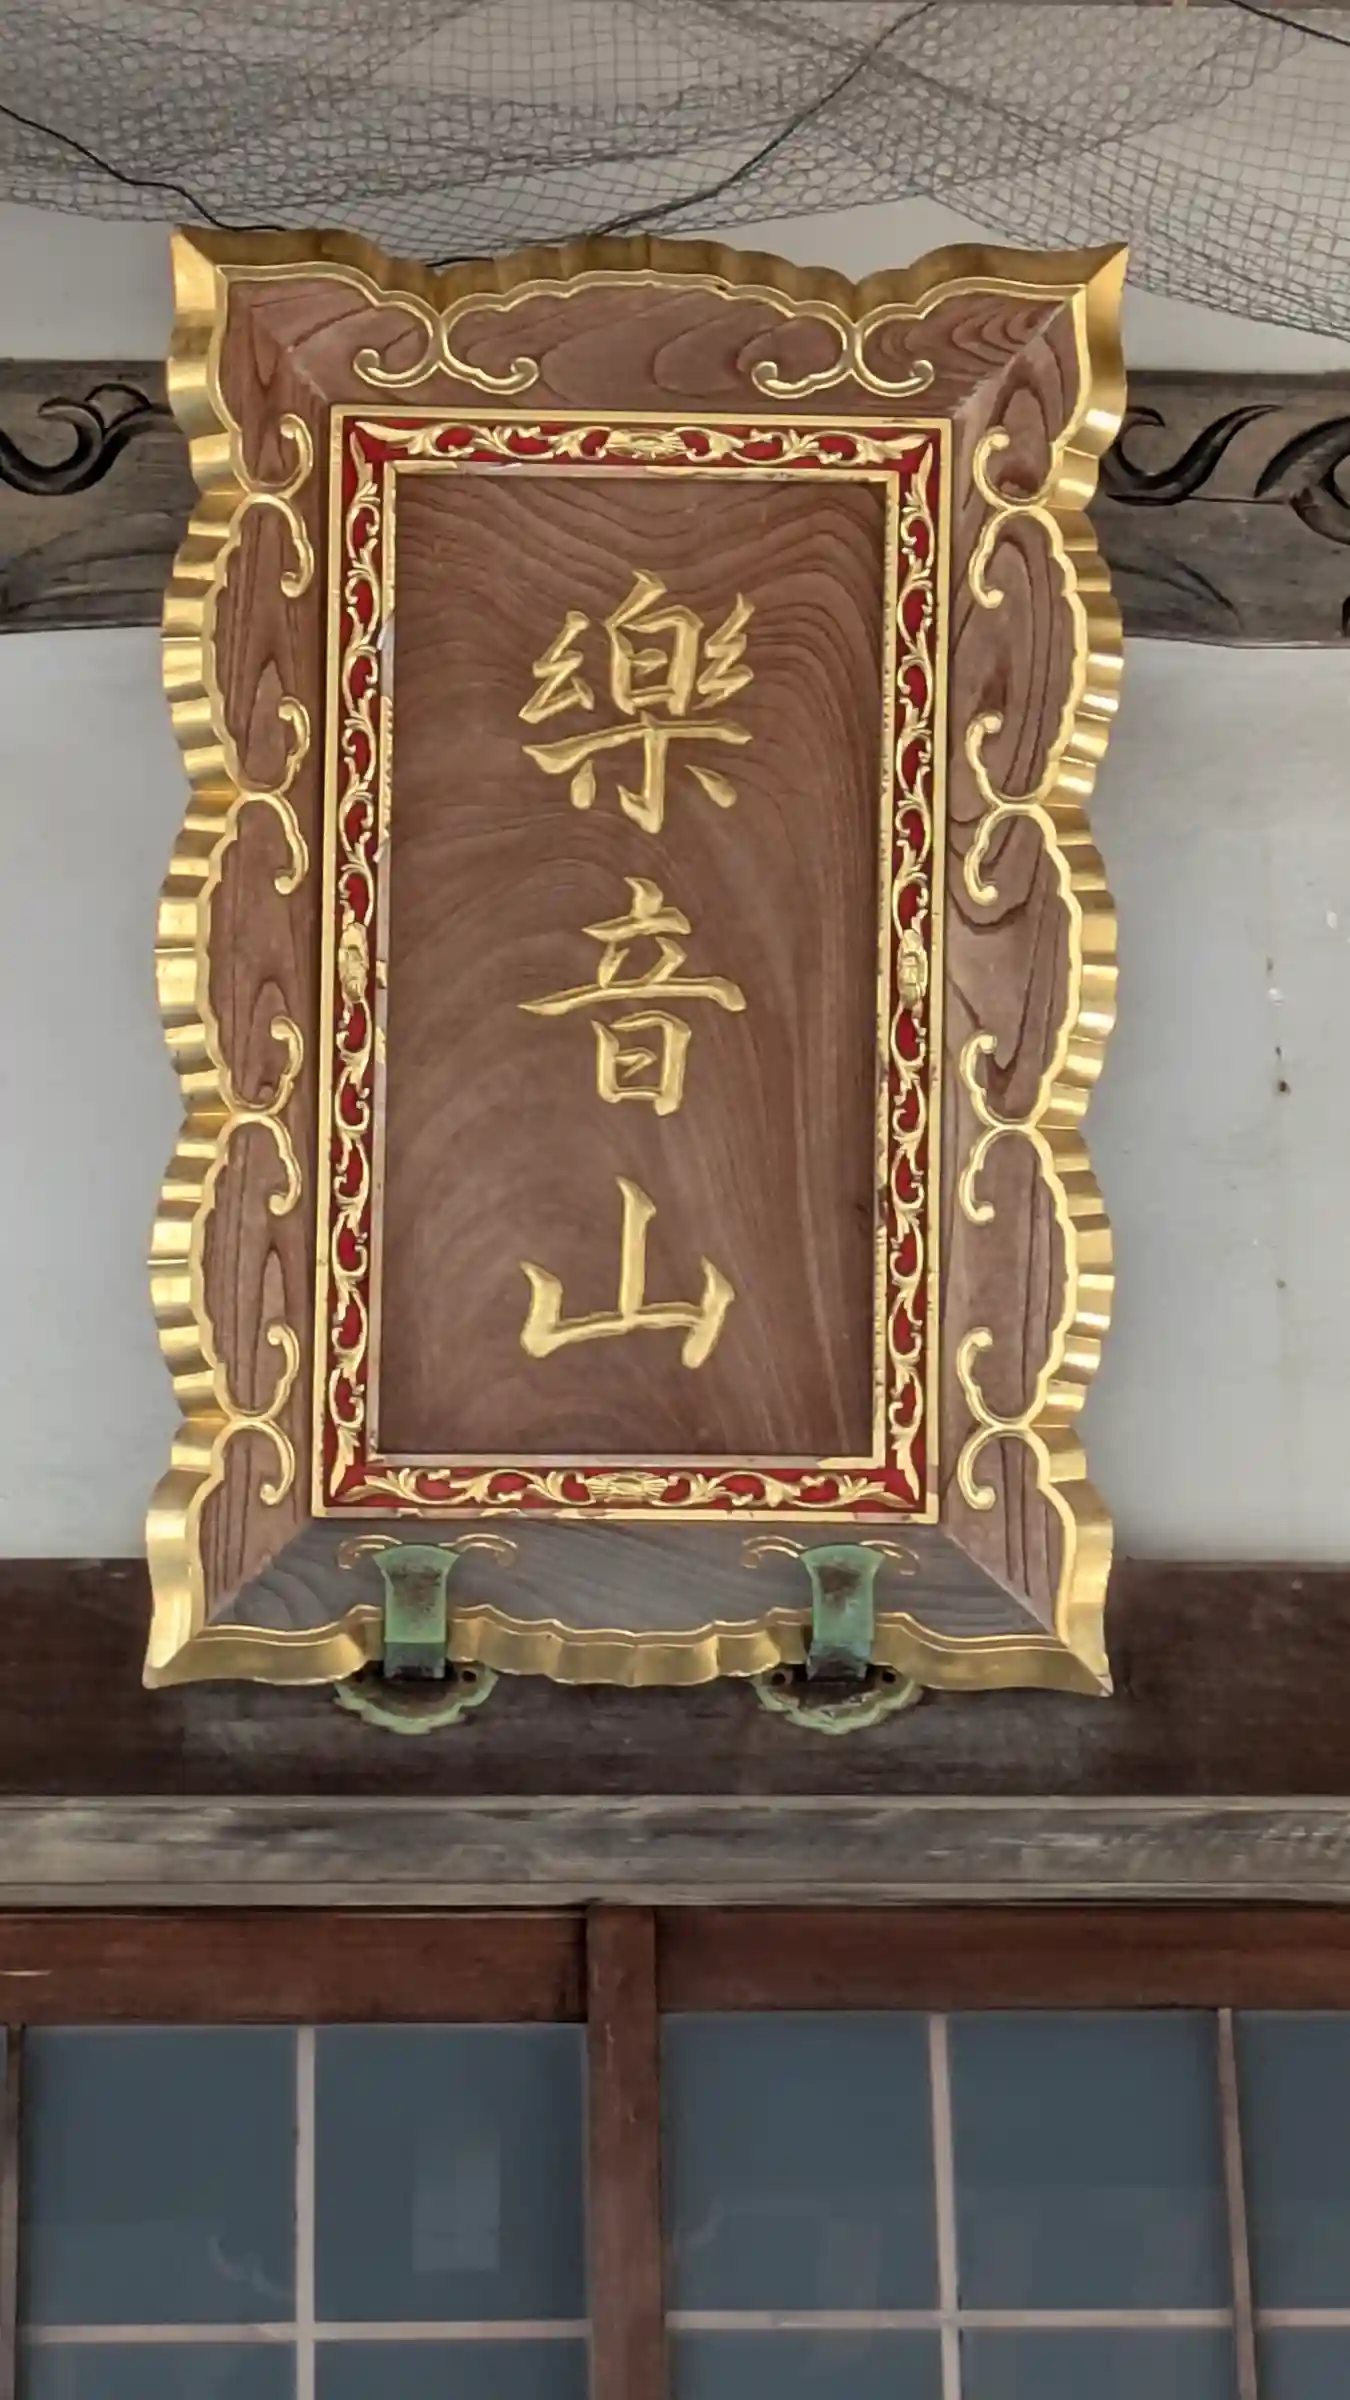 樂音山